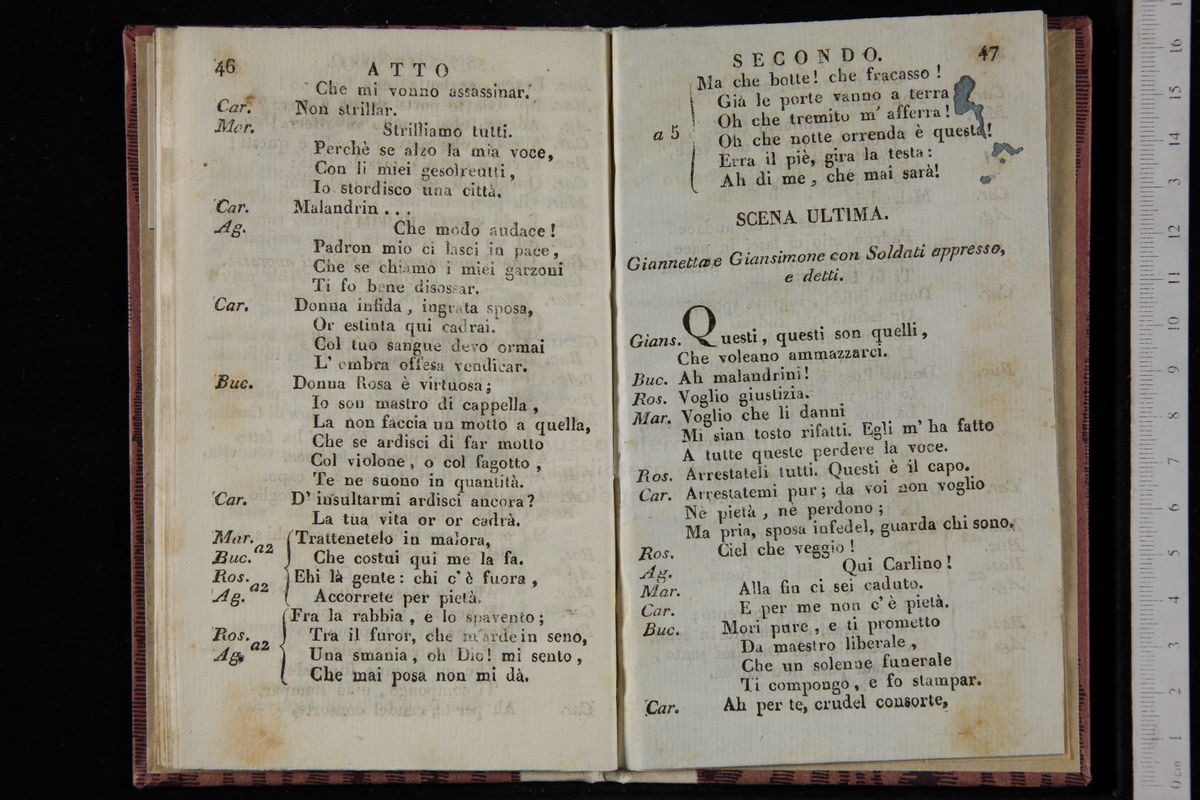 46
ATTO
Che mi vonno assassinar.
Car. Non strillar.
Mar. Strilliamo tutti.
Perchè se alzo la mia voce,
Con li miei gesolreutti,
Io stordisco una città.
Car. Malandrin . . .
Ag. Che modo audace!
Padron mio ci lasci in pace,
Che se chiamo i miei garzoni
Ti fo bene disossar.
Car. Donna infida, ingrata sposa,
Or estinta qui cadrai.
Col tuo sangue devo ormai
L' ombra offesa vendicar.
Buc. Donna Rosa è virtuosa;
Io son mastro di cappella,
La non faccia un motto a quella,
Che se ardisci di far motto
Col violone, o col fagotto,
Te ne suono in quantità.
Car. D' insultarmi ardisci ancora?
La tua vita or or cadrà.
Mar. Trattenetelo in malora,
Buc. a2 Che costui qui me la fa.
Ros. Ehi là gente: chi c' è fuora,
Ag. a2 Accorrete per pietà.
Fra la rabbia, e lo spavento;
Ros. a2 Tra il furor, che m'arde in seno,
Ag. Una smania, oh Dio! mi sento,
Che mai posa non mi dà.
SECONDO. 47
Ma che botte! che fracasso!
Già le porte vanno a terra
Oh che tremito m' afferra!
a 5 Oh che notte orrenda è questa!
Erra il piè, gira la testa:
Ah di me, che mai sarà!
SCENA ULTIMA.
Giannetta e Giansimone con Soldati appresso,
e detti.
Gians. Questi, questi son quelli,
Che voleano ammazzarci.
Buc. Ah malandrini!
Ros. Voglio giustizia.
Mar. Voglio che li danni
Mi sian tosto rifatti. Egli m' ha fatto
A tutte queste perdere la voce.
Ros. Arrestateli tutti. Questi è il capo.
Car. Arrestatemi pur; da voi non voglio
Nè pietà, nè perdono;
Ma pria, sposa infedel, guarda chi sono.
Ros. Ciel che veggio!
Ag. Qui Carlino!
Mar. Alla fin ci sei caduto.
Car. E per me non c' è pietà.
Buc. Mori pure, e ti prometto
Da maestro liberale,
Che un solenne funerale
Ti compongo, e fo stampar.
Car. Ah per te, crudel consorte,